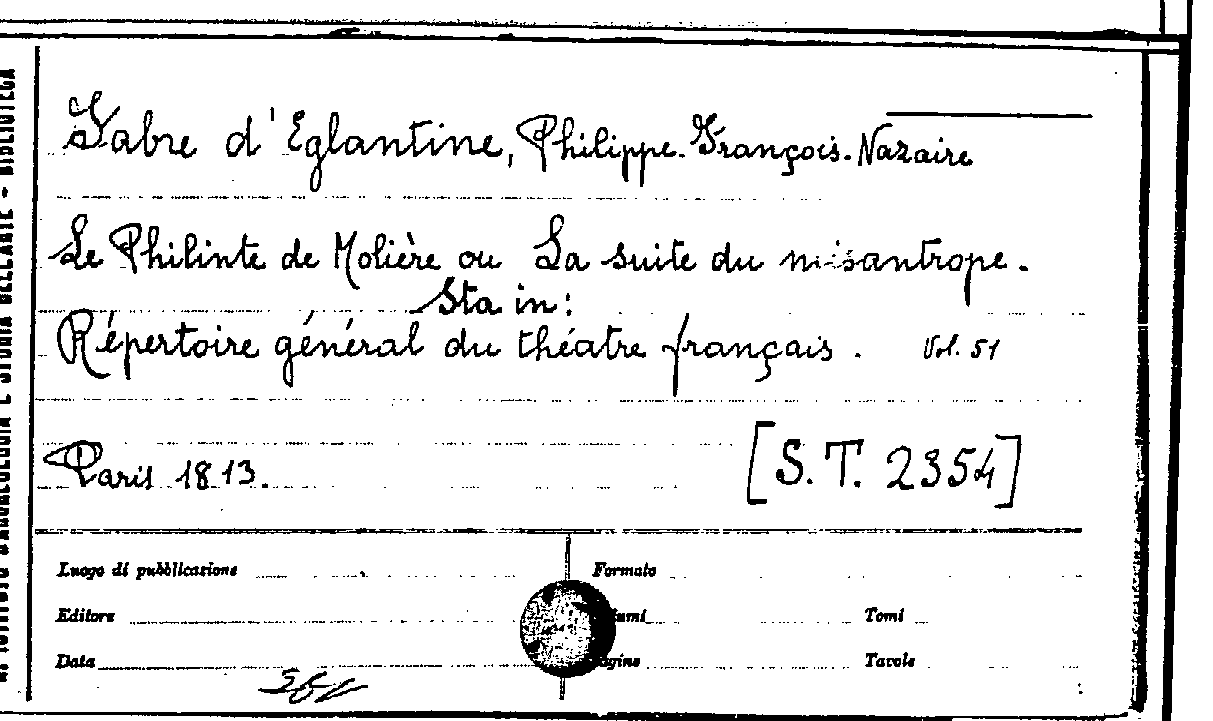 Fabre d'Eglantine, Philippe-François-Nazaire
Le Philinte de Molière ou La suite du misantrope.
Sta in:
Répertoire général du théatre français. Vol. 51
Paris 1813. [S.T. 2354]
Luogo di pubblicazione Formato
Editore Tomi
Data Tavole
E STORIA DELL'ARTE - BIBLIOTECA